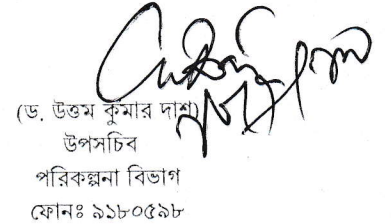 (ড. উত্তম কুমার দাশ)
উপসচিব
পরিকল্পনা বিভাগ
ফোনঃ ৯১৮০৫৯৮